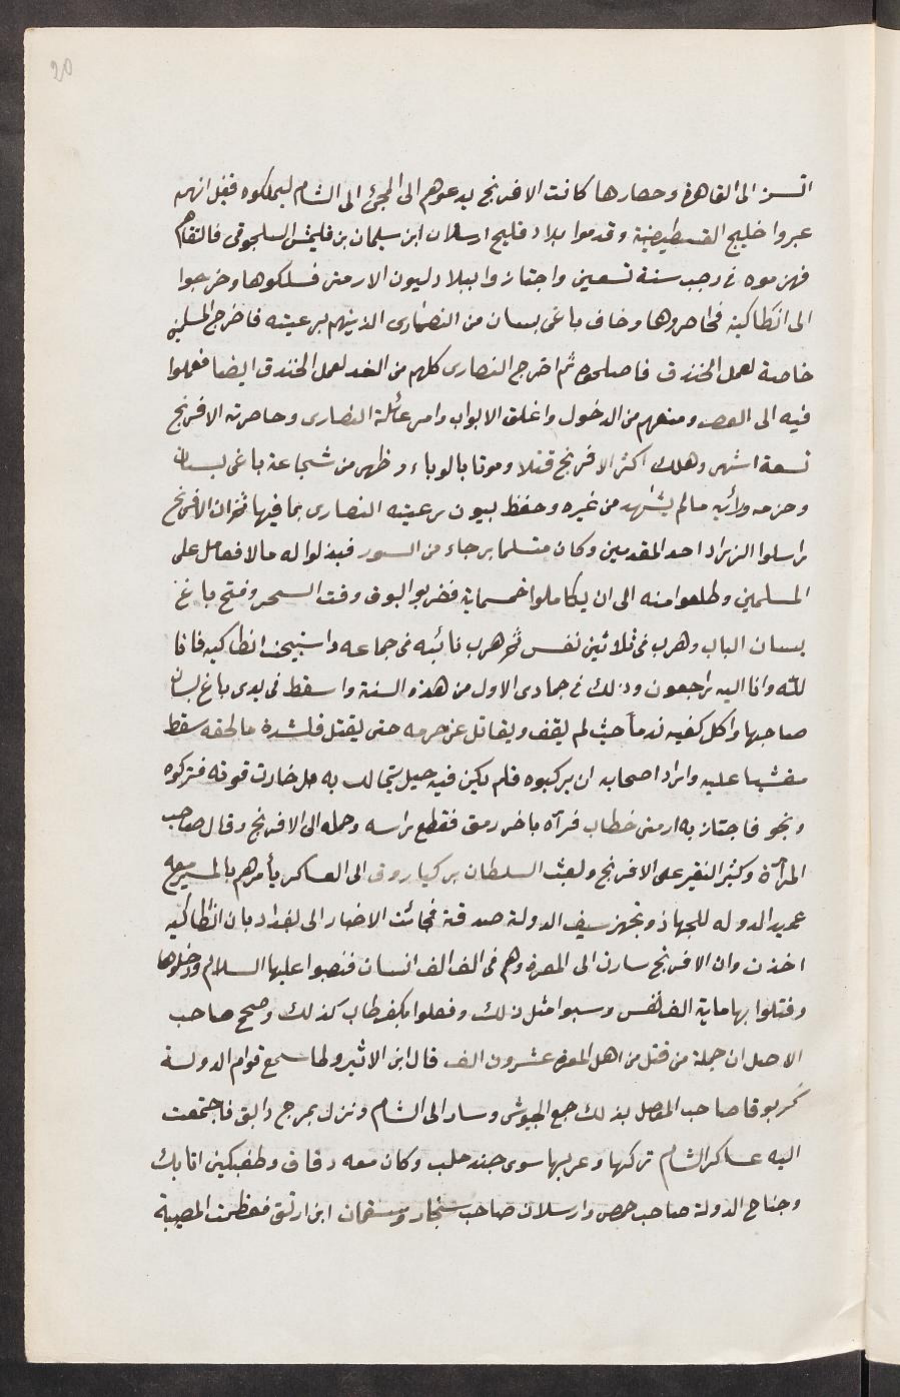 20
اتسز الى القاهرة وحصارها كانت الافرنج يدعوهم الى المجئ الى الشام ليملكوه فقيل انهم
عبروا خليج القسطيطينية وقدموا بلاد قليج ارسلان ابن سليمان بن قليمش السلجوقى فالتقاهم
فهزموه فى رجب سنة تسعين واجتازوا ببلاد ليون الارمنى فسلكوها وخرجوا
الى انطاكية فحاصروها وخاف باغى بسان من النصارى الذينهم برعيته فاخرج المسلمين
خاصة لعمل الخندق فاصلحوه ثم اخرج النصارى كلهم من الغد لعمل الخندق ايضا فعملوا
فيه الى العصر ومنعهم من الدخول واغلق الابواب وامن عائلة النصارى وحاصرته الافرنج
تسعة اشهر وهلك اكثر الافرنج قتلا وموتا بالوباء وظهر من شجاعة باغى بسان
وحزمه ورأيه مالم يشهد من غيره وحفظ بيوت رعيته النصارى بما فيها ثم ان الافرنج
راسلوا الزراد احد المقدمين وكان متسلما برجاء من السور فبذلوا له مالا فعامل على
المسلمين وطلعوا منه الى ان يكاملوا خمسماية فضربوا البوق وقت السحر وفتح باغى
بسان الباب وهرب فى ثلاثين نفس ثم هرب نائبه فى جماعه واستبيحت انطاكيه فانا
لله وانا اليه راجعون وذلك فى جمادى الاول من هذه السنة واسقط فى يدى باغ بسان
صاحبها واكل كفيه ندماً حيث لم يقف ويقاتل عن حرمه حتى يقتل فلشدة مالحقه سقط
مغشيا عليه واراد اصحابه ان يركبوه فلم يكن فيه حيل يتمالك به بل خارت قوته فتركوه
ونجو فاجتاز به ارمنى خطاب فرآه باخر رمق فقطع راسه وحمله الى الافرنج وقال صاحب
المرآة وكثر النفير على الافرنج وبعث السلطان بركياروق الى العساكر يأمرهم بالمسير مع
عميد الدوله للجهاد وتجهز سيف الدولة صدقة فجائت الاخبار الى بغداد بان انطاكيه
اخذت وان الافرنج سارت الى المعرة وهم فى الف الف انسان فنصبوا عليها السلالم ودخلوها
وقتلوا بها ماية الف نفس وسبوا مثل ذلك وفعلوا بكفرطاب كذلك وصحح صاحب
الاصل ان جملة من قتل من اهل المعرة عشرون الف قال ابن الاثير ولما سمع قوام الدولة
كربوقا صاحب الموصل بذلك جمع الجيوش وسار الى الشام ونزل بمرج دابق فاجتمعت
اليه عساكر الشام تركها وعربها سوى جند حلب وكان معه دقاق وطغبكين اتابك
وجناح الدولة صاحب حمص وارسلان صاحب سنجار وسقمان ابن ارتق فعظمت المصيبة